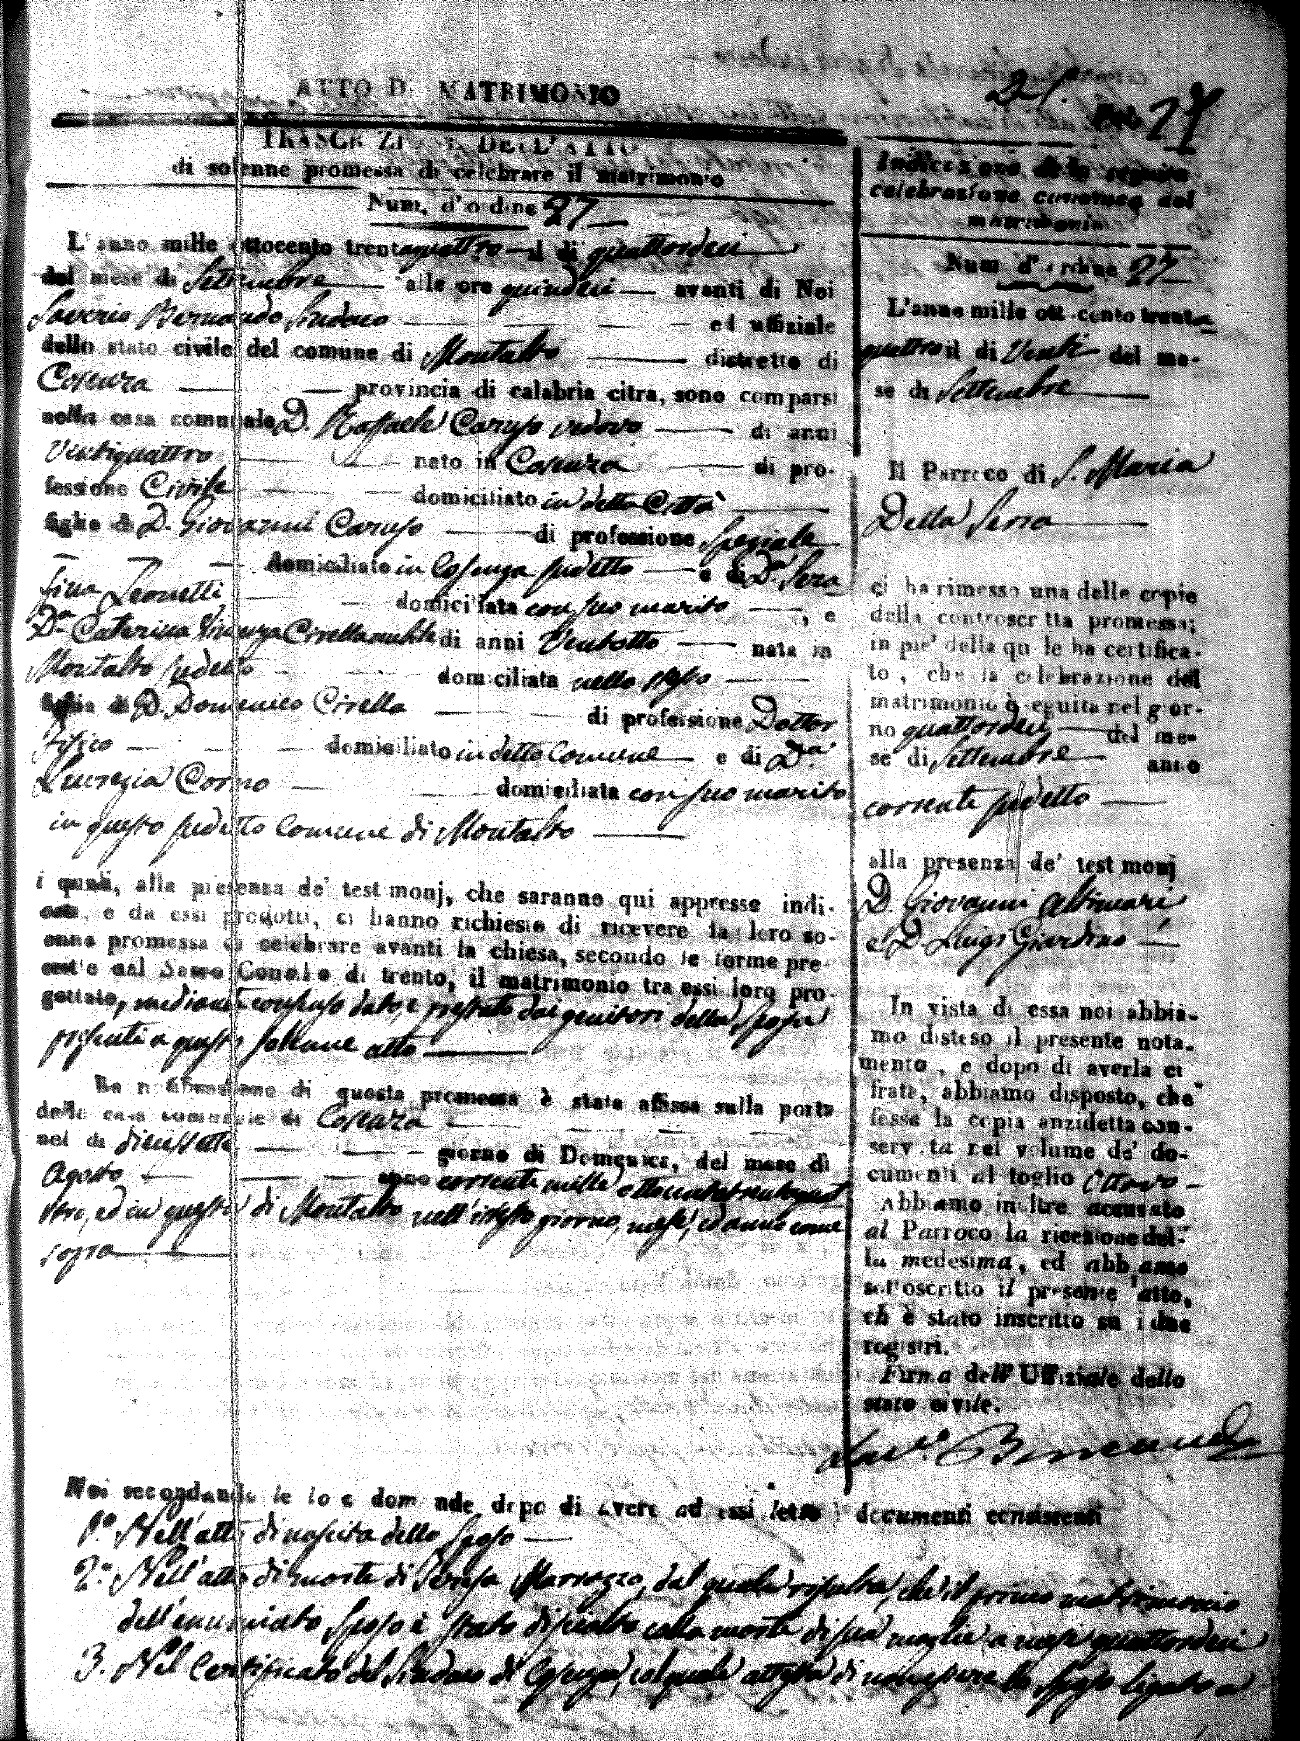 ATTO DI MATRIMONIO
27
TRASCRIZIONE DELL'ATTO
di solenne promessa di celebrare il matrimonio
Num. d'ordine 27
L'anno mille ottocento trentaquattro il dì quattordeci
del mese di Settembre alle ore quindeci avanti di Noi
Saverio Bernaudo Sindaco ed uffiziale
dello stato civile del comune di Montalto distretto di
Cosenza provincia di calabria citra, sono comparsi
nella casa comunale D. Raffaele Caruso vedovo di anni
Ventiquattro nato in Cosenza di pro-
fessione Civile domiciliato in detta Città
figlio di D. Giovanni Caruso di professione Speziale
domiciliato in Cosenza sudetto e di D.a Sera
fina Leonetti domiciliata con suo marito, e
D.a Caterina Vincenza Civella nubile di anni Ventotto nata in
Montalto sudetto domiciliata nello stesso
figlia di D. Domenico Civella di professione Dottor
Fisico domiciliato in detto Comune e di D.a
Lucrezia Corno domiciliata con suo marito
in questo sudetto Comune di Montalto
i quali, alla presenza de' testimonj, che saranno qui appresse indi-
cati, e da essi prodotti, ci hanno richiesto di ricevere la loro so-
lenne promessa di celebrare avanti la chiesa, secondo le forme pre-
scritte dal Sacro Concilio di trento, il matrimonio tra essi loro pro-
gettato, mediante consenso dato, e prestato dai genitori della Sposa
presenti a questo sollenne atto
La notificazione di questa promessa è stata affissa sulla porta
della casa comunale di Cosenza
nel dì diecissette giorno di Domenica, del mese di
Agosto anno corrente mille ottocentotrentaquat
tro, ed in questa di Montalto nell'istesso giorno, mese, ed anno come
sopra
Indicazione della seguita
celebrazione canonica del
matrimonio
Num. d'ordine 27
L'anno mille ottocento trenta
quattro il dì Venti del me-
se di Settembre
Il Parroco di S. Maria
Della Serra
ci ha rimesso una delle copie
della controscritta promessa;
in pie' della quale ha certifica-
to, che la celebrazione del
matrimonio è seguita nel gior-
no quattordeci del me-
se di Settembre anno
corrente sudetto
alla presenza de' testimonj
D. Giovanni Alimeari
e D. Luigi Giardino
In vista di essa noi abbia-
mo disteso il presente nota-
mento, e dopo di averla ci
frata, abbiamo disposto, che
fosse la copia anzidetta con-
servata nel volume de' do-
cumenti al foglio Ottavo
Abbiamo inoltre accusato
al Parroco la ricezione del-
la medesima, ed abbiamo
sottoscritto il presente atto,
ch'è stato inscritto su i due
registri.
Firma dell'Uffiziale dello
stato civile.
Sav.o Bernaudo
Noi secondando le loro domande dopo di avere ad essi letto i documenti consistenti
1.o Nell'atto di nascita dello Sposo
2.o Nell'atto di morte di Teresa Marrazzo, dal quale risulta, che il primo matrimonio
dell'enunciato Sposo è stato disciolto colla morte di sua moglie a mesi quattordeci
3. Nel Certificato del Sindaco di Cosenza, col quale attesta di non essere lo Sposo ligato a